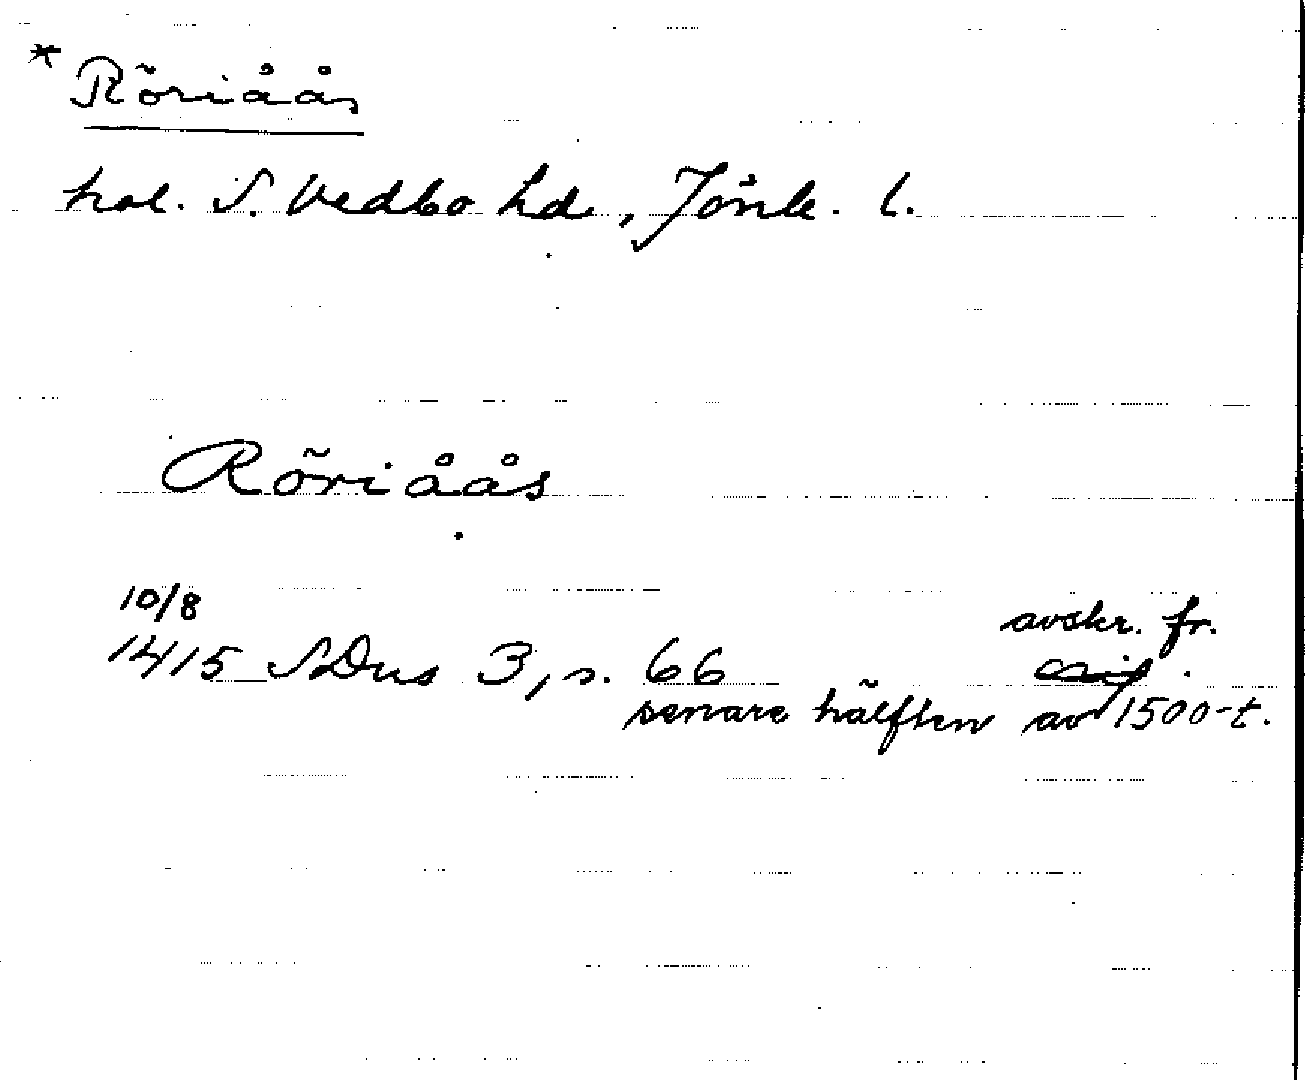 * Röriåås
hol. S. Vedbo hd, Jönk. l.
Röriåås
10/8
1415 SDns 3, s. 66 avskr. fr.
senare hälften av 1500-t.